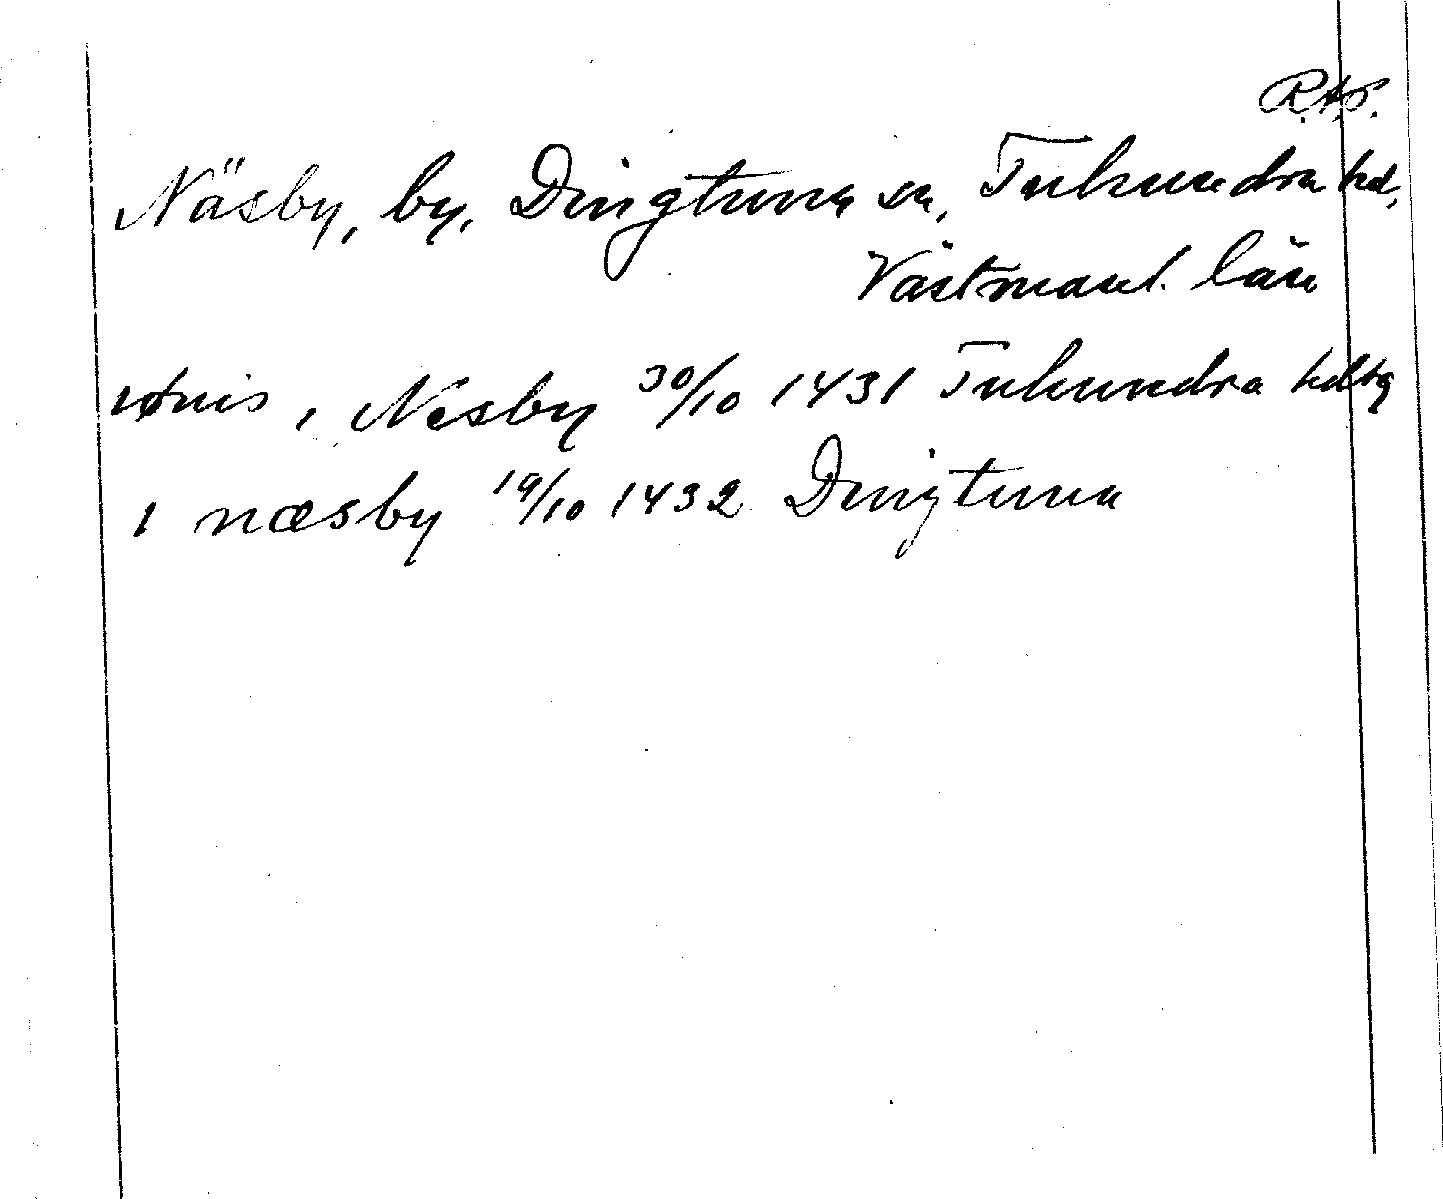 R.A.P.
Näsby, by, Dingtuna sn, Tuhundra hd,
Västmanl. län
i Nesby 30/10 1431 Tuhundra hdtg
i næsby 19/10 1432 Dingtuna